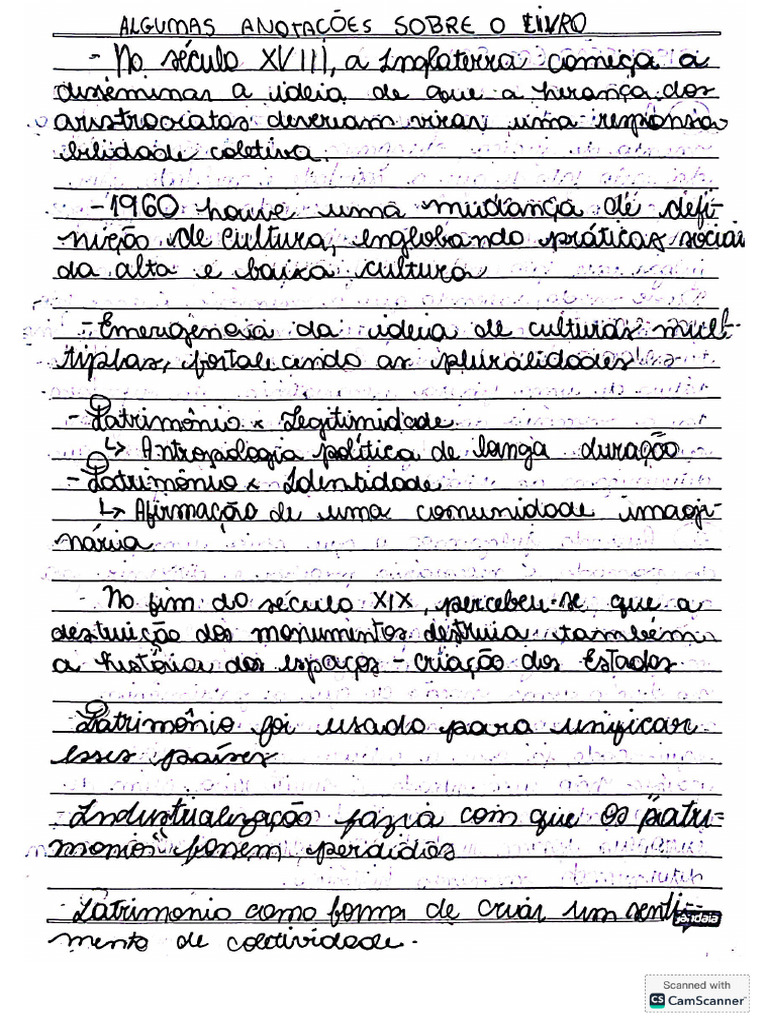 ALGUMAS ANOTAÇÕES SOBRE O LIVRO
- No século XVIII, a Inglaterra começa a
disseminar a ideia de que a herança dos
aristrocratas deveriam virar uma responsa
bilidade coletiva.
- 1960 houve uma mudança de defi-
nição de cultura, englobando práticas sociais
da alta e baixa cultura
- Emergência da ideia de culturas múl-
tiplas, fortalecendo as pluralidades
- Patrimônio x Legitimidade
↳ Antropologia política de longa duração
- Patrimônio x Identidade
↳ Afirmação de uma comunidade imagi-
nária
- No fim do século XIX, percebeu-se que a
destruição dos monumentos destruia também
a história dos espaços - criação dos Estados
- Patrimônio foi usado para unificar
esses países
- Industrialização fazia com que os "patri-
monios" fossem perdidos
- Patrimonio como forma de criar um senti-
mento de coletividade.
jandaia
Scanned with
CS CamScanner